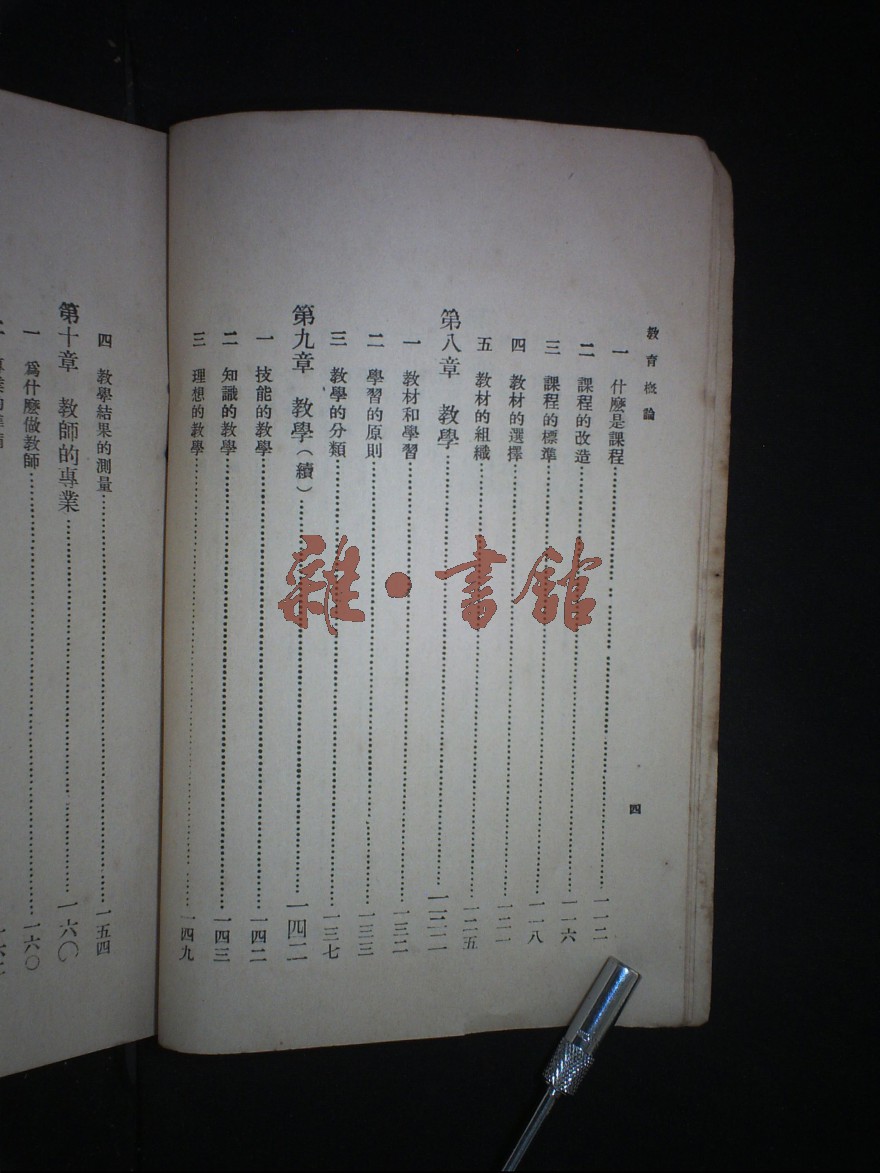 教育概論
四
一 什麼是課程……一一二
二 課程的改造……一一六
三 課程的標準……一一八
四 教材的選擇……一二一
五 教材的組織……一二五
第八章 教學……一三二
一 教材和學習……一三二
二 學習的原則……一三三
三 教學的分類……一三七
第九章 教學（續）……一四二
一 技能的教學……一四二
二 知識的教學……一四三
三 理想的教學……一四九
四 教學結果的測量……一五四
第十章 教師的專業……一六〇
一 爲什麼做教師……一六〇
雜·書館